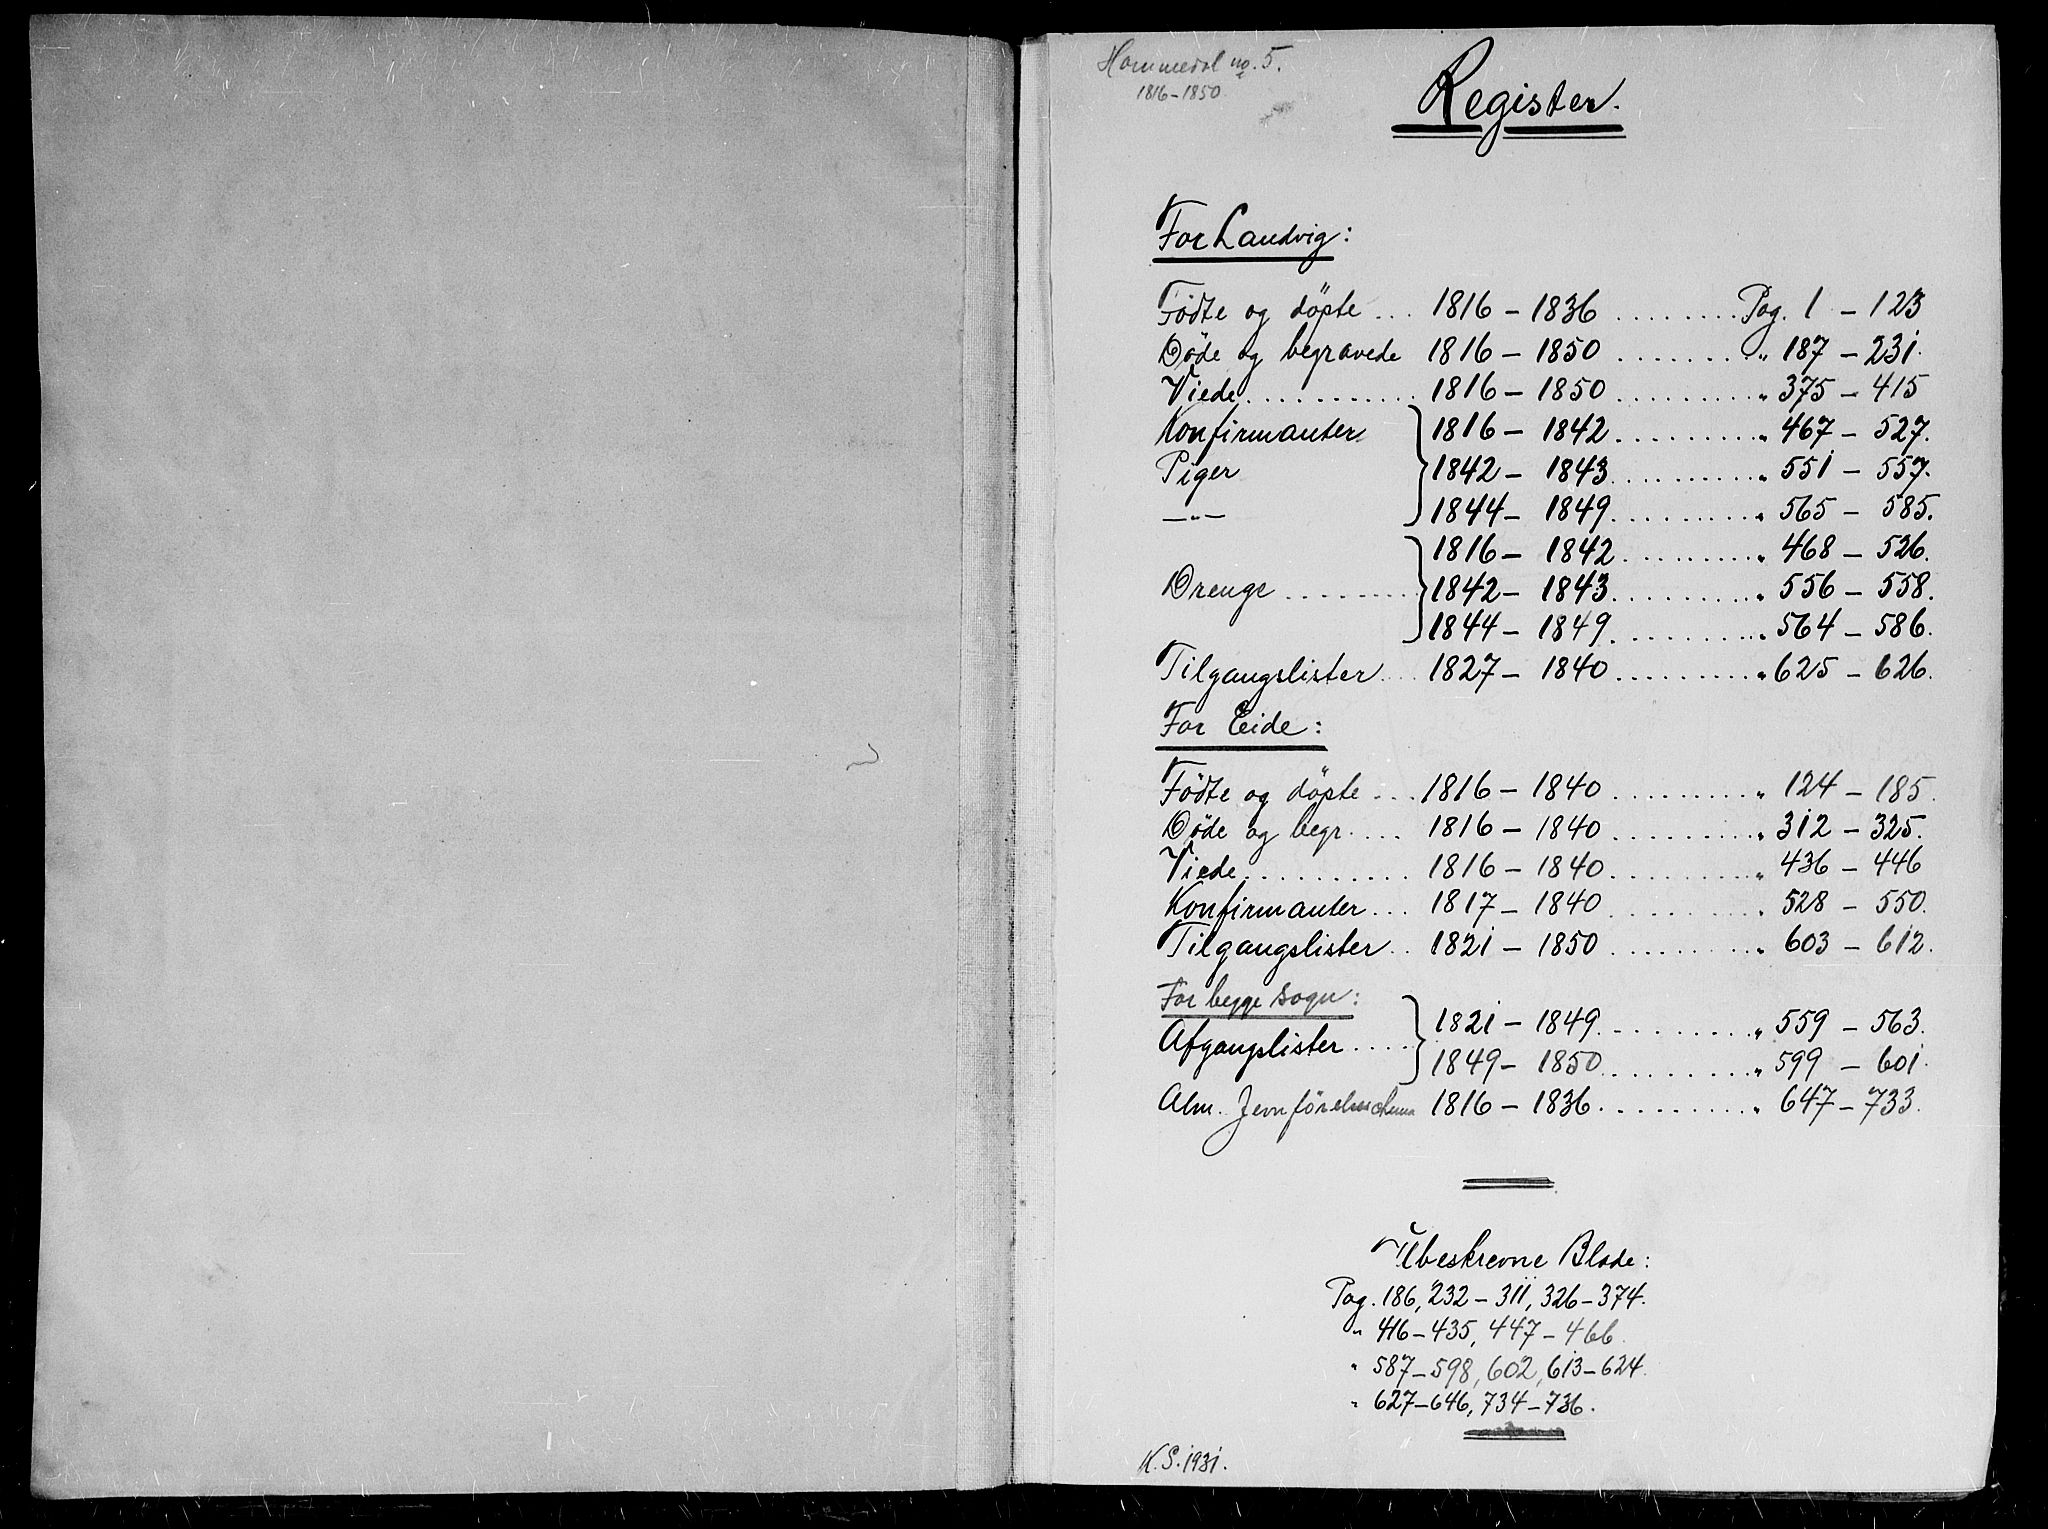 Hommedal no. 5.
1816-1850
Register.
For Landvig:
Födte og döpte ... 1816 - 1836 ......... Pag. 1 - 123
Döde og begravede 1816 - 1850 ......... " 187 - 231.
Viede ........... 1816 - 1850 ......... " 375 - 415
Konfirmanter 1816 - 1842 ......... " 467 - 527.
Piger 1842 - 1843 ......... " 551 - 557.
—"— 1844 - 1849 ......... " 565 - 585.
1816 - 1842 ......... " 468 - 526.
Drenge ......... 1842 - 1843 ......... " 556 - 558.
1844 - 1849 ......... " 564 - 586.
Tilgangslister ... 1827 - 1840 ......... " 625 - 626.
For Eide:
Födte og döpte ... 1816 - 1840 ......... " 124 - 185.
Döde og begr. ... 1816 - 1840 ......... " 312 - 325.
Viede .......... 1816 - 1840 ......... " 436 - 446
Konfirmanter ... 1817 - 1840 ......... " 528 - 550.
Tilgangslister .. 1821 - 1850 ......... " 603 - 612.
For begge sogn:
1821 - 1849 ......... " 559 - 563.
Afgangslister ....
1849 - 1850 ......... " 599 - 601.
Alm. Jevnförelsesschema 1816 - 1836 ......... " 647 - 733.
Ubeskrevne Blade:
Pag. 186, 232 - 311, 326 - 374.
" 416 - 435, 447 - 466.
" 587 - 598, 602, 613 - 624.
" 627 - 646, 734 - 736.
K.S. 1931.